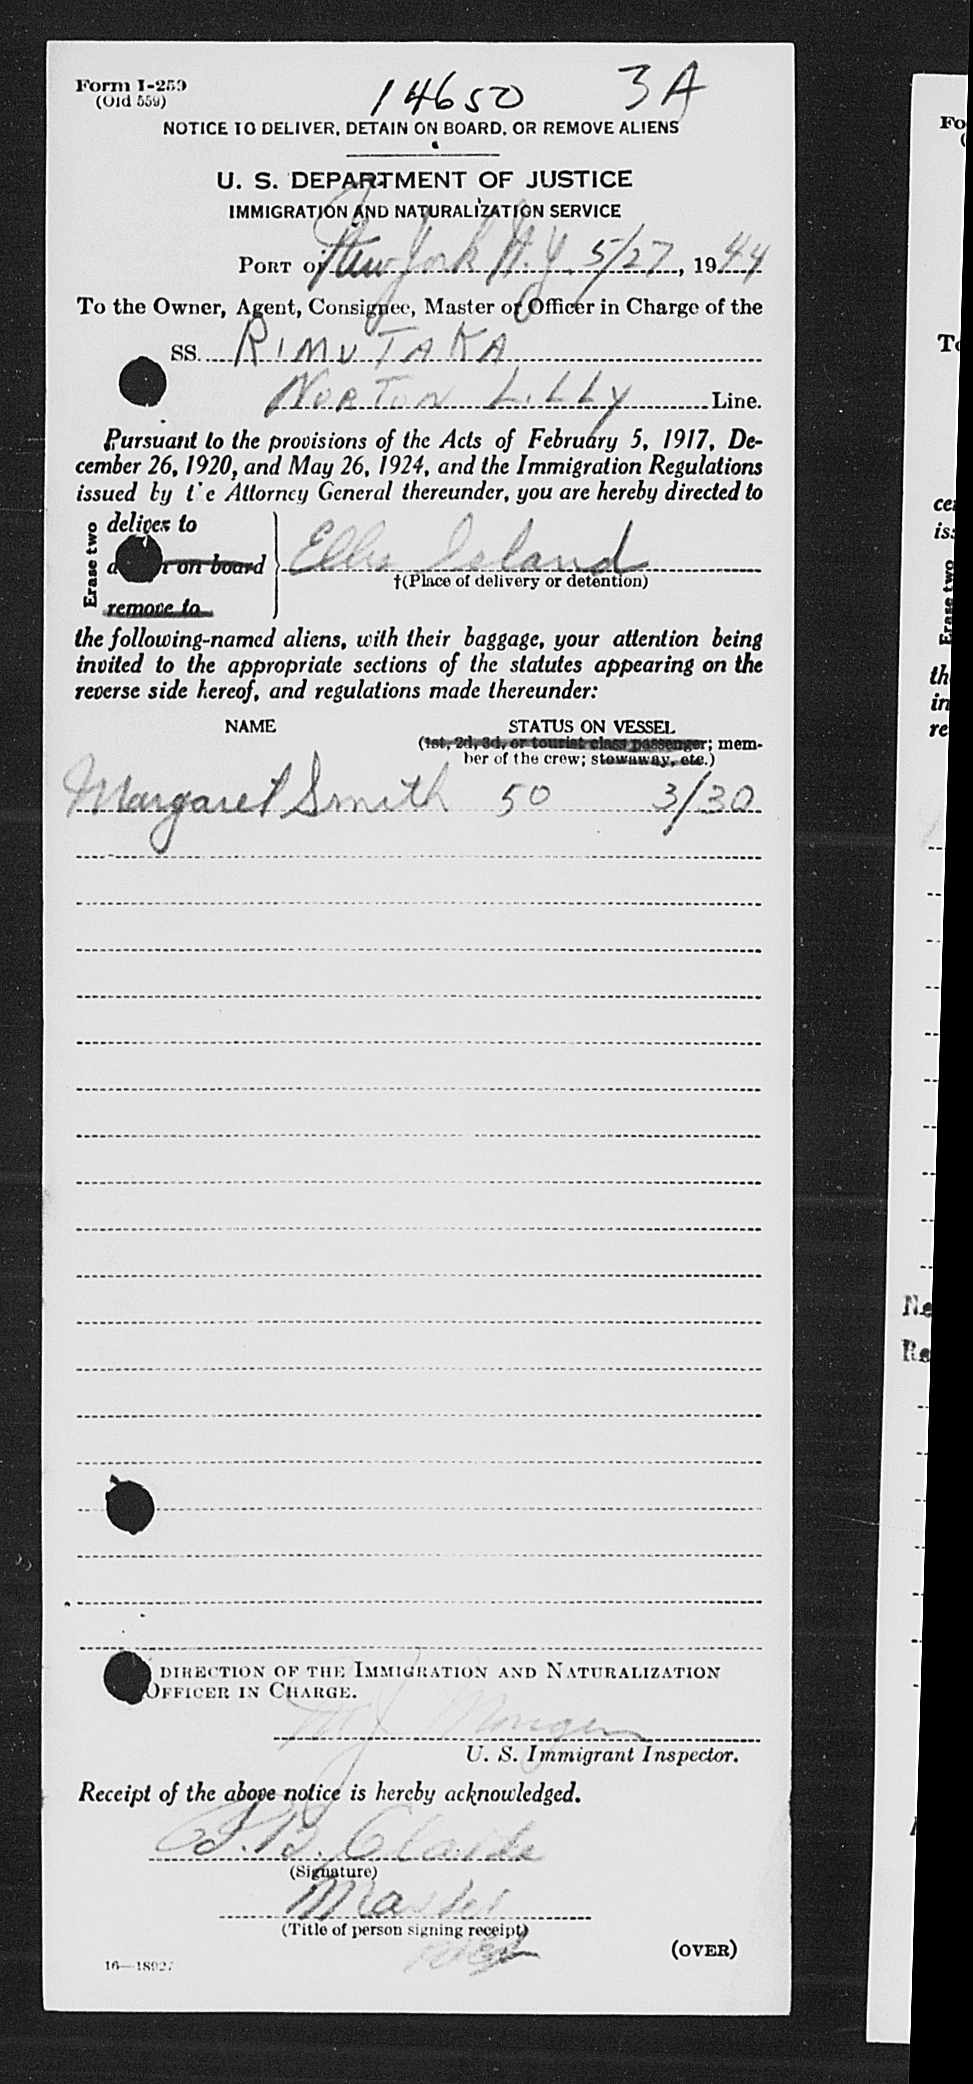 Form I-259
(Old 559)
14650 3A
NOTICE TO DELIVER, DETAIN ON BOARD, OR REMOVE ALIENS
U. S. DEPARTMENT OF JUSTICE
IMMIGRATION AND NATURALIZATION SERVICE
PORT of New York N.Y. 5/27, 1944
To the Owner, Agent, Consignee, Master or Officer in Charge of the
SS. RIMUTAKA
NORTON LILLY Line.
Pursuant to the provisions of the Acts of February 5, 1917, De-
cember 26, 1920, and May 26, 1924, and the Immigration Regulations
issued by the Attorney General thereunder, you are hereby directed to
Erase two
deliver to
on board
remove to
Ellis Island
†(Place of delivery or detention)
the following-named aliens, with their baggage, your attention being
invited to the appropriate sections of the statutes appearing on the
reverse side hereof, and regulations made thereunder:
NAME STATUS ON VESSEL
(1st, 2d, 3d, or tourist class passenger; mem-
ber of the crew; stowaway, etc.)
Margaret Smith 50 3/30
DIRECTION OF THE IMMIGRATION AND NATURALIZATION
OFFICER IN CHARGE.
U. S. Immigrant Inspector.
Receipt of the above notice is hereby acknowledged.
(Signature)
Master
(Title of person signing receipt)
(OVER)
16—18927
Fo
(
To
Erase two
th
in
re
Ne
Re